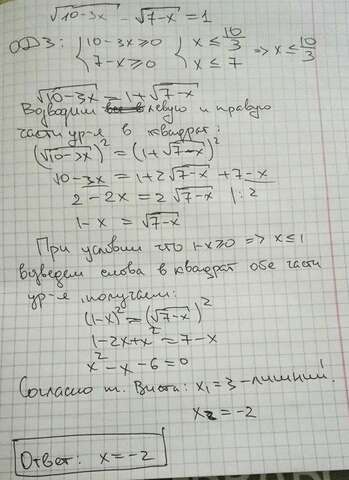 √(10-3x) - √(7-x) = 1
ОДЗ: { 10-3x ≥ 0 { x ≤ 10/3 => x ≤ 10/3
7-x ≥ 0 x ≤ 7
√(10-3x) = 1+√(7-x)
Возводим левую и правую
части ур-я в квадрат:
(√(10-3x))² = (1+√(7-x))²
10-3x = 1+2√(7-x) +7-x
2-2x = 2√(7-x) |:2
1-x = √(7-x)
При условии что 1-x≥0 => x≤1
возведем снова в квадрат обе части
ур-я, получаем:
(1-x)² = (√(7-x))²
1-2x+x² = 7-x
x²-x-6=0
Согласно т. Виета: x₁=3-лишний.
x₂=-2
Ответ: x=-2